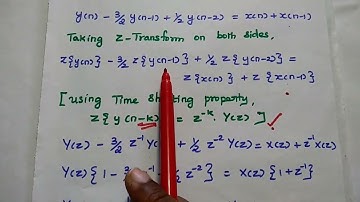 y(n) - 3/2 y(n-1) + 1/2 y(n-2) = x(n) + x(n-1)
Taking Z-Transform on both sides,
z{y(n)} - 3/2 z{y(n-1)} + 1/2 z{y(n-2)} =
z{x(n)} + z{x(n-1)}
[using Time Shifting property,
z{y(n-k)} = z^-k. Y(z)] ✓
Y(z) - 3/2 z^-1 Y( + 1/2 z^-2 Y(z) = X(z) + z^-1 X(z)
Y(z) {1 - 3/2 z^-2} = X(z) {1 + z^-1}